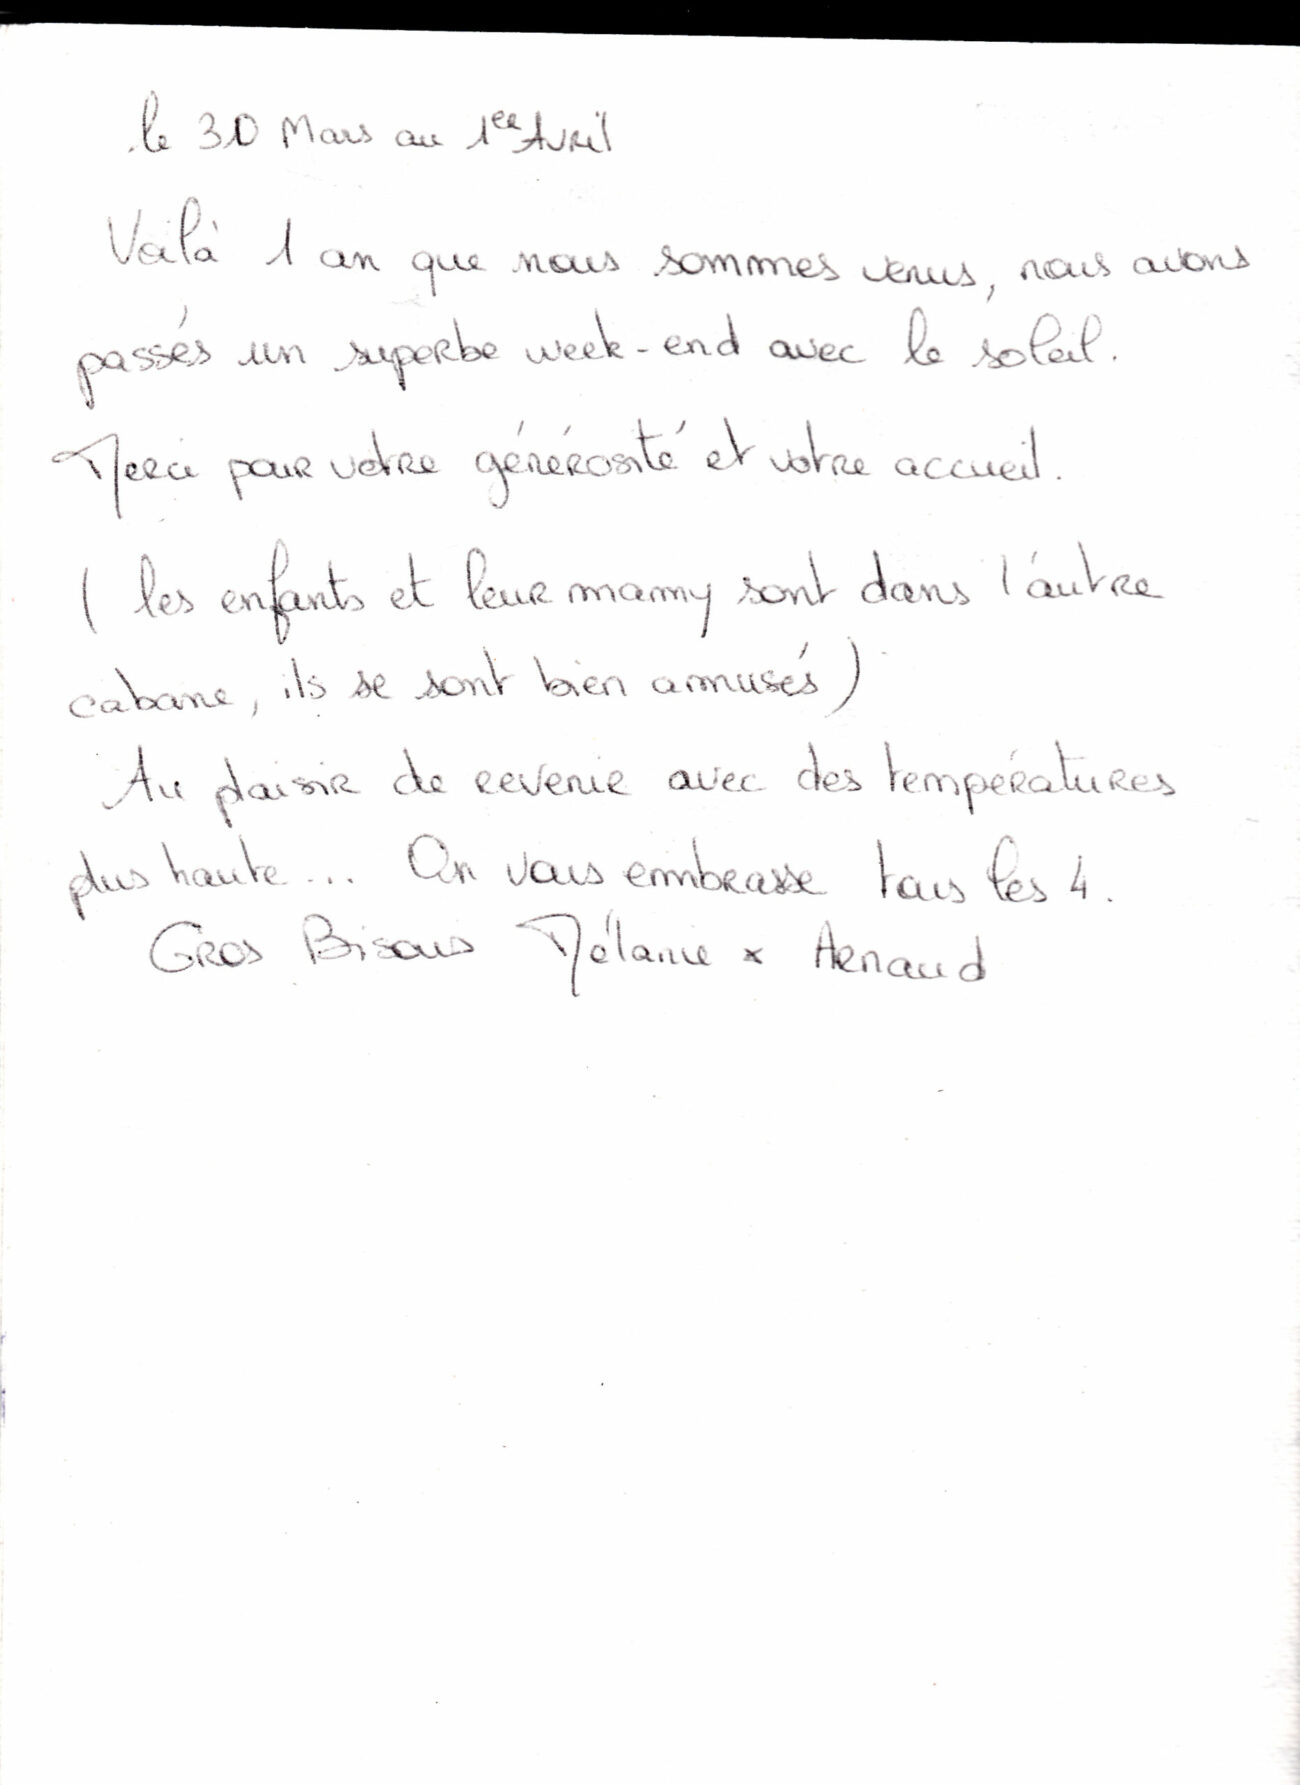 le 30 Mars au 1er Avril
Voilà 1 an que nous sommes venus, nous avons
passés un superbe week-end avec le soleil.
Merci pour votre générosité et votre accueil.
( les enfants et leur mamy sont dans l'autre
cabane, ils se sont bien amusés )
Au plaisir de revenir avec des températures
plus haute... On vous embrasse tous les 4.
Gros Bisous Mélanie x Arnaud